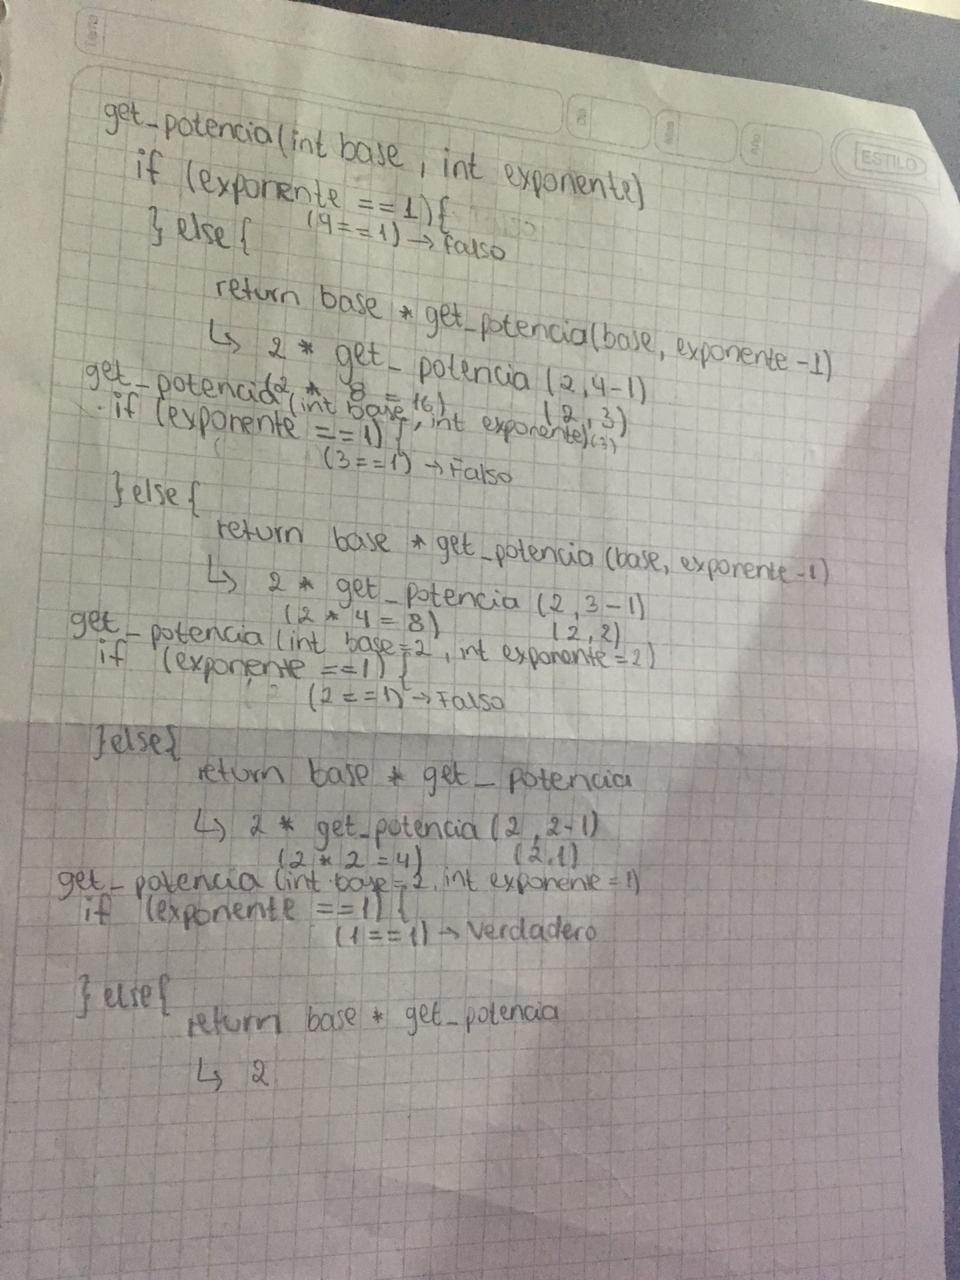 ESTILO
get_potencia(int base, int exponente)
if (exponente ==1){
(4==1) → Falso
} else{
return base * get_potencia(base, exponente -1)
↳ 2 * get_potencia (2,4-1)
(2 * 8 = 16) (2,3)
get_potencia (int base, int exponente)(3)
if (exponente ==1){
(3==1) → Falso
} else{
return base * get_potencia (base, exponente -1)
↳ 2 * get_potencia (2,3-1)
(2 * 4 = 8) (2,2)
get_potencia (int base=2, int exponente=2)
if (exponente ==1) {
(2==1) → Falso
}else{
return base * get_potencia
↳ 2 * get_potencia (2,2-1)
(2 * 2 =4) (2,1)
get_potencia (int base=2, int exponente=1)
if (exponente ==1) {
(1==1) → Verdadero
} else{
return base * get_potencia
↳ 2